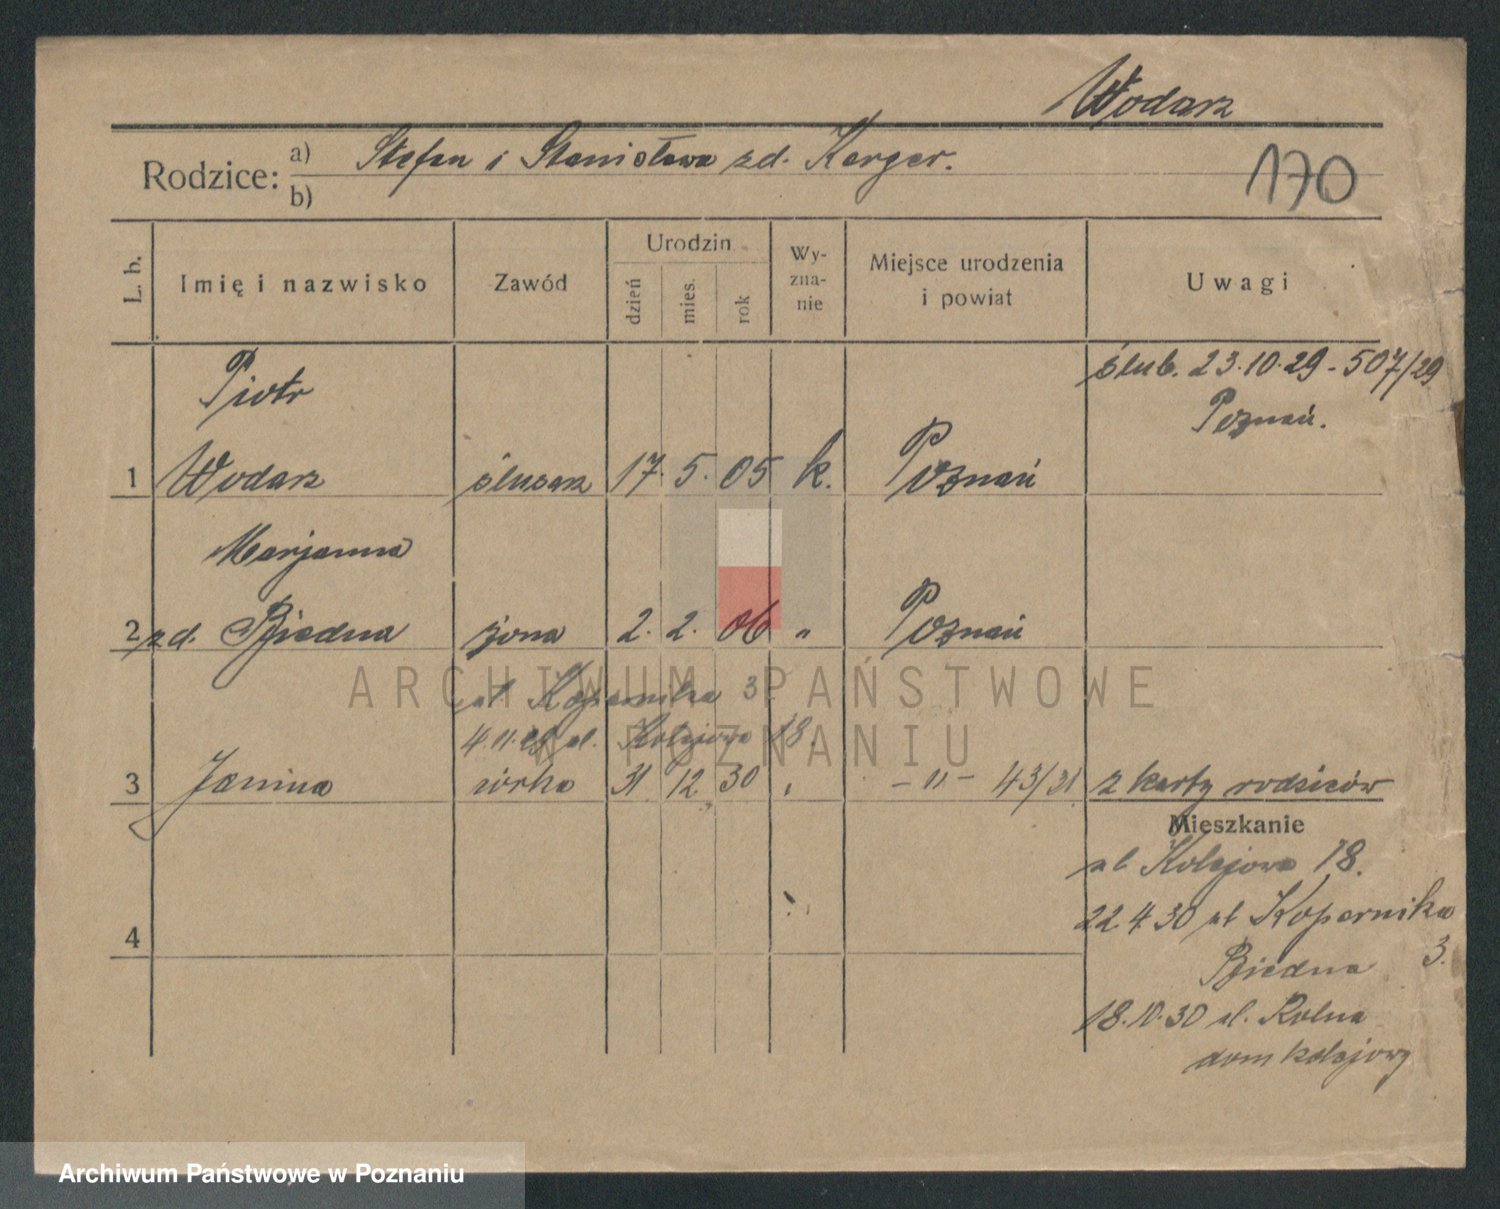 Wodarz
Rodzice: a) Stefan i Stanisława zd. Karger.
b)
170
L. b.
Imię i nazwisko
Zawód
Urodzin
dzień
mies.
rok
Wy-
zna-
nie
Miejsce urodzenia
i powiat
Uwagi
ślub. 23.10.29 - 507/29
Poznań.
Piotr
1 Wodarz ślusarz 17. 5. 05 k. Poznań
Marjanna
2 zd. Biedna żona 2. 2. 06 " Poznań
ul. Kopernika 3
4.11.29 ul. Kolejowa 18.
3 Janina córka 31 12 30 " - " - 43/31 z karty rodziców
Mieszkanie
ul Kolejowa 18.
22.4.30 ul Kopernika
3.
Biedna
18.10.30 ul. Rolna
dom kolejowy
4
ARCHIWUM PAŃSTWOWE
W POZNANIU
Archiwum Państwowe w Poznaniu